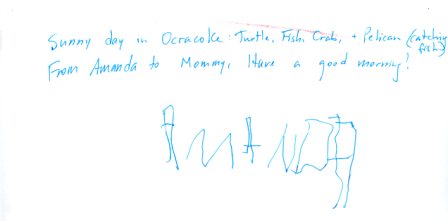 Sunny day in Ocracoke: Turtle, Fish, Crab, + Pelican (catching fish)
From Amanda to Mommy, Have a good morning!
AMANDA